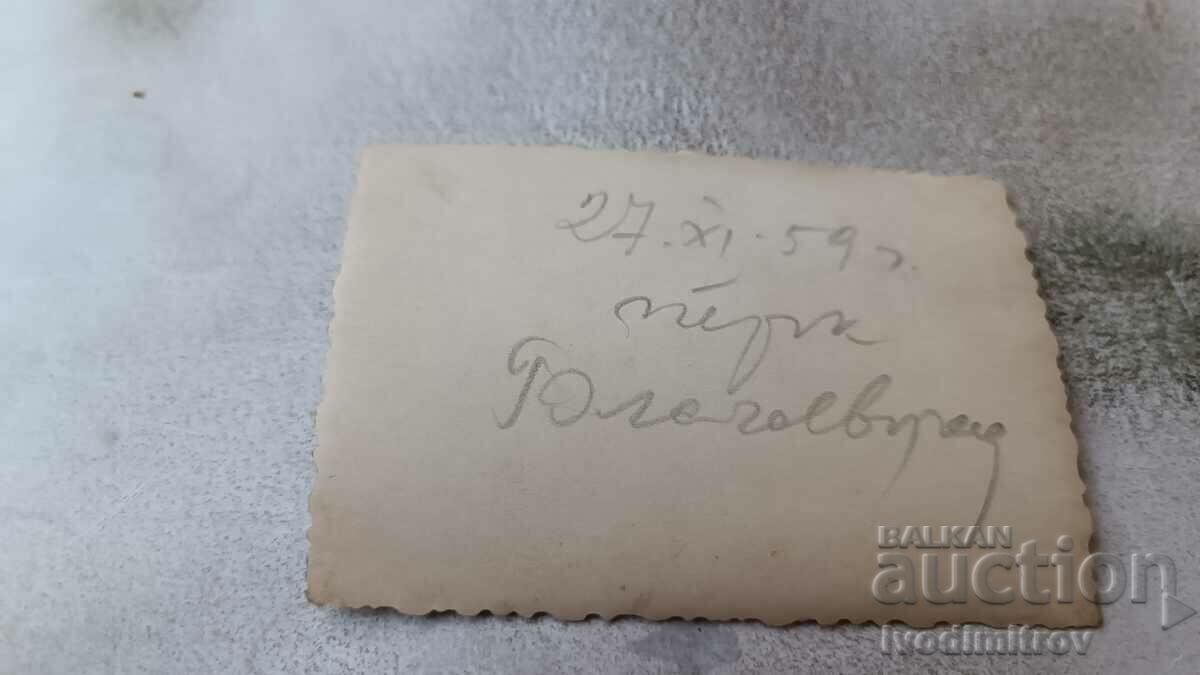 27.XI.59 г.
Благоевград
BALKAN
auction
ivodimitrov